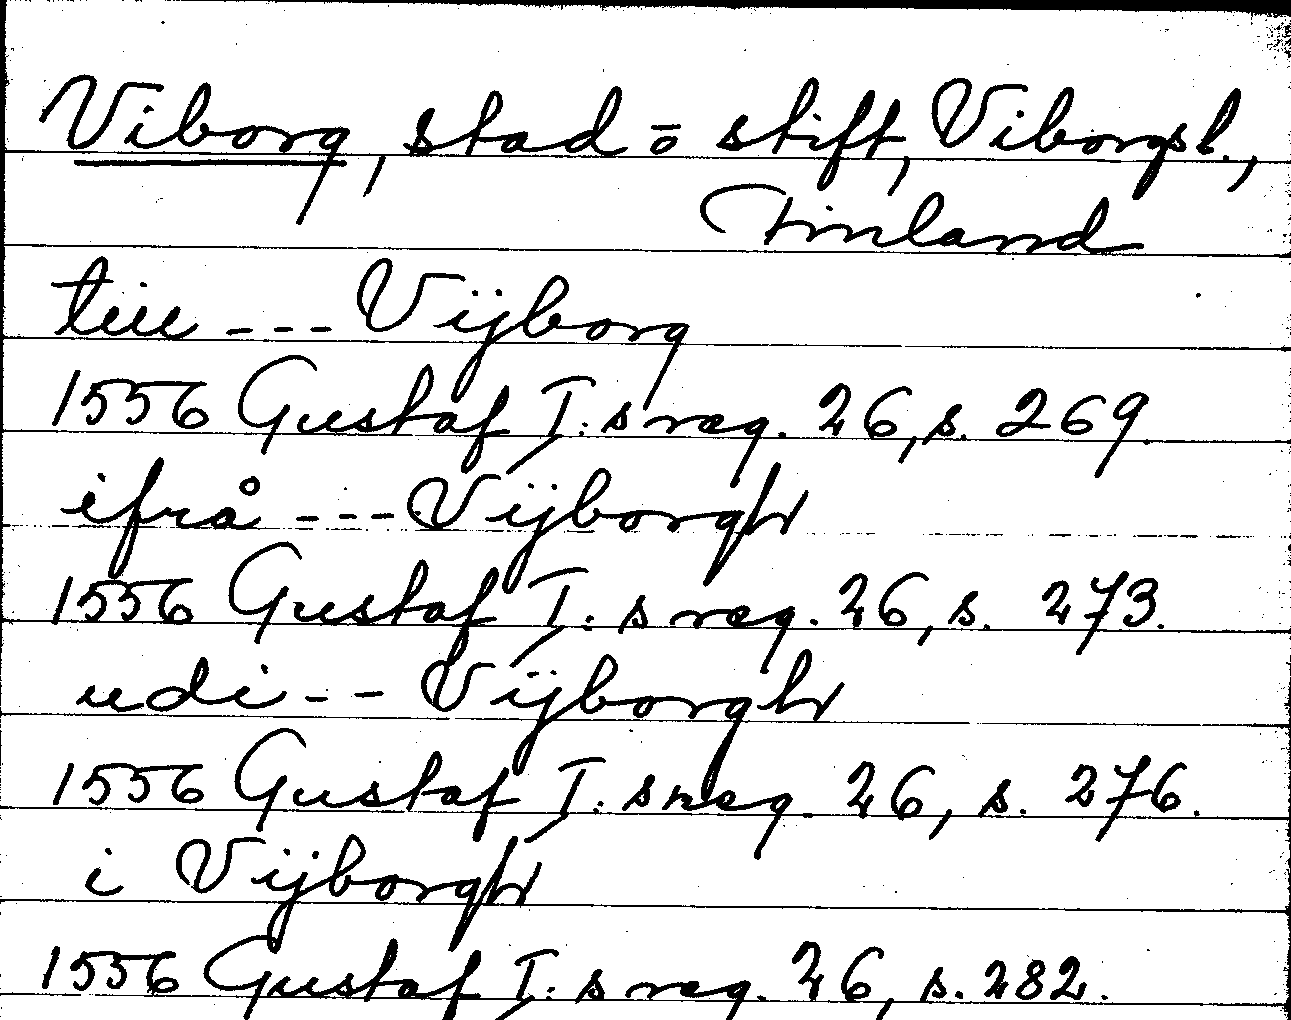 Viborg, stad o stift, Viborgsl.,
Finland
till --- Vijborg
1556 Gustaf I:s reg. 26, s. 269.
ifrå --- Vijborgh
1556 Gustaf I:s reg. 26, s. 273.
udi -- Vijborgh
1556 Gustaf I:s reg. 26, s. 276.
i Vijborgh
1556 Gustaf I:s reg. 26, s. 282.